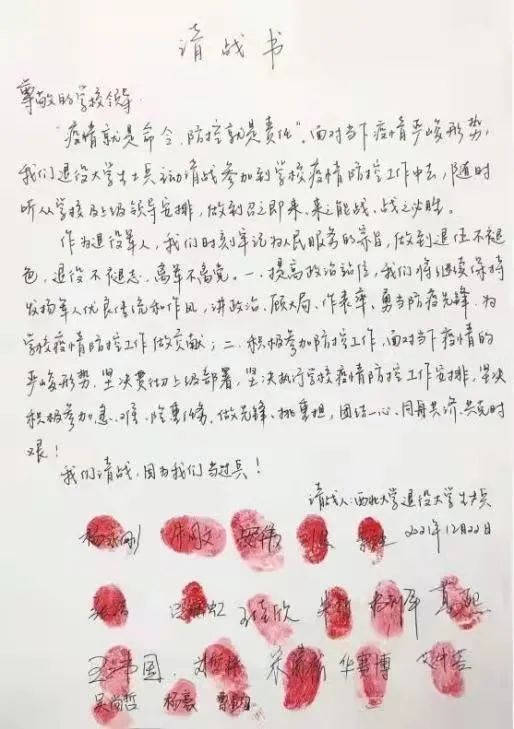 请战书
尊敬的学校领导:
"疫情就是命令,防控就是责任"。面对当下疫情严峻形势,
我们退役大学生士兵主动请战参加到学校疫情防控工作中去,随时
听从学校及上级领导安排,做到召之即来、来之能战、战之必胜。
作为退役军人,我们时刻牢记为人民服务的宗旨,做到退伍不褪
色,退役不褪志,离军不离党。一、提高政治站位,我们将继续保持
发扬军人优良传统和作风,讲政治、顾大局、作表率、勇当防疫先锋,为
学校疫情防控工作做贡献;二、积极参加防控工作,面对当下疫情的
严峻形势,坚决贯彻上级部署,坚决执行学校疫情防控工作安排,坚决
积极参加急、难、险、重任务,做先锋、挑重担,团结一心、同舟共济、共克时
艰!
我们请战,因为我们当过兵!
请战人:西北大学退役大学生士兵
2021年12月22日
王佳欣
华雲博
吴尚哲 杨豪